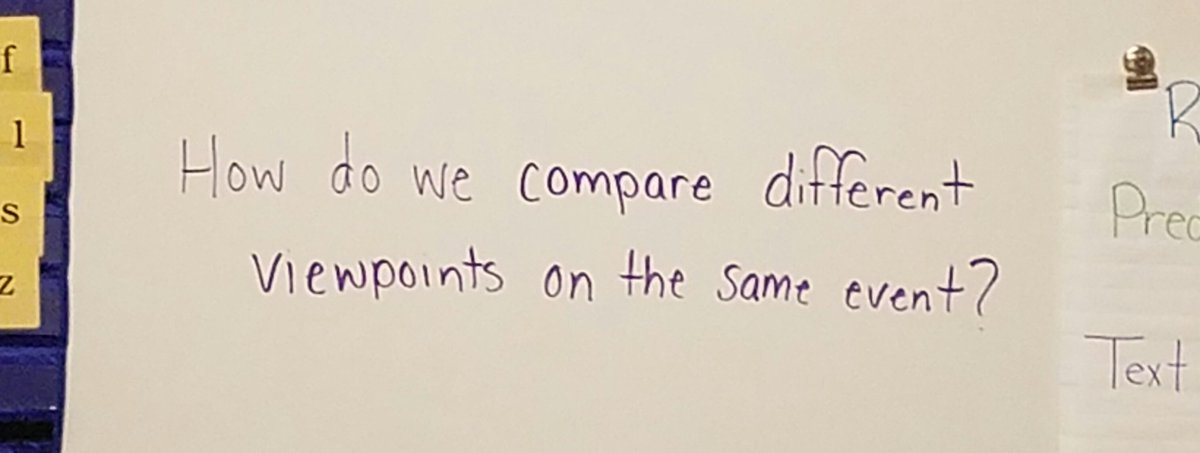 f
l
s
z
How do we compare different
viewpoints on the same event?
R
Prec
Text